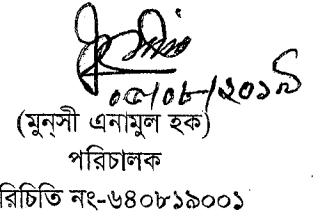 ০৫/০৮/২০১৯
(মুন্‌সী এনামুল হক)
পরিচালক
রিচিতি নং-৬৪০৮১৯০০১